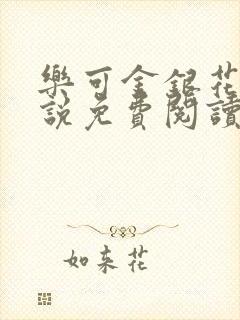 樂可金銀花
說免費閱讀
如来花